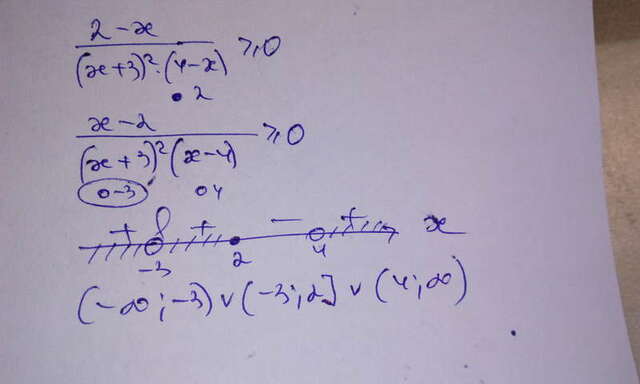 (2-x)/((x+3)²·(4-x)) ≥ 0
• 2
(x-2)/((x+3)²(x-4)) ≥ 0
o-3 o4
+ + - + x
-3 2 4
(-∞;-3)∨(-3;2]∨(4;∞)